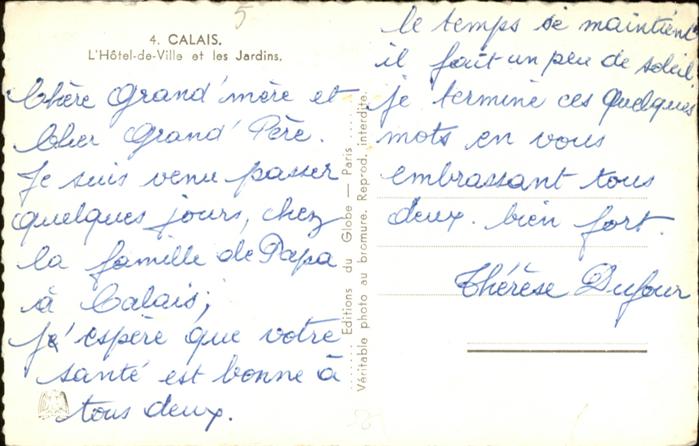 5
4. CALAIS.
L'Hôtel-de-Ville et les Jardins.
Chère Grand'mère et
Cher Grand'Père.
Je suis venu passer
quelques jours, chez
la famille de Papa
à Calais;
j'espère que votre
santé est bonne à
tous deux.
Editions du Globe — Paris
Véritable photo au bromure. Reprod. interdite.
le temps se maintient
il fait un peu de soleil.
je termine ces quelques
mots en vous
embrassant tous
deux. bien fort.
Thérèse Dufour